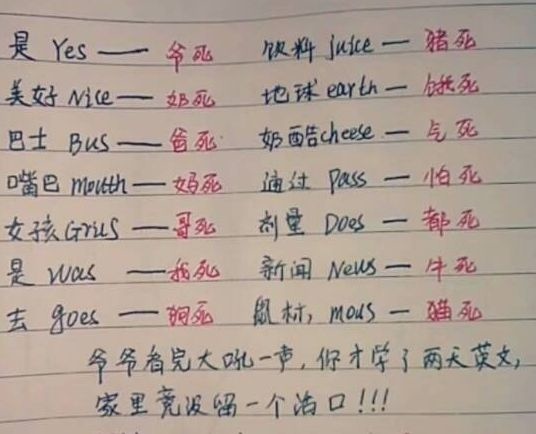 是 Yes —— 爷死 饮料 juice — 猪死
美好 Nice — 奶死 地球 earth — 饿死
巴士 Bus — 爸死 奶酷 cheese — 气死
嘴巴 moutth — 妈死 通过 Pass — 怕死
女孩 Grils — 哥死 剂量 Does — 都死
是 was — 我死 新闻 News — 牛死
去 goes — 狗死 鼠标, mous — 猫死
爷爷看完大吼一声, 你才学了两天英文,
家里竟没留一个活口!!!